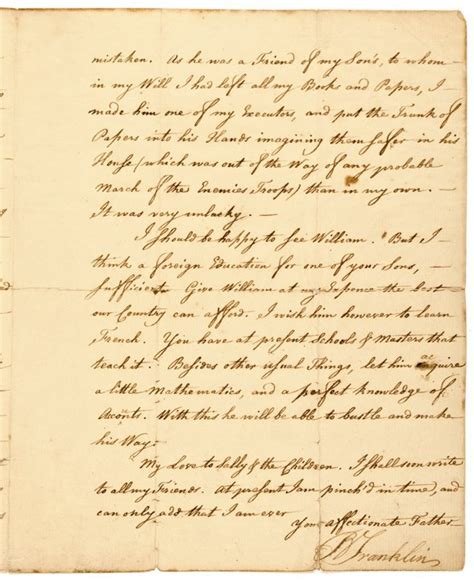 mistaken. As he was a Friend of my Son's, to whom
in my Will I had left all my Books and Papers, I
made him one of my Executors, and put the Trunk of
Papers into his Hands imagining them safer in his
House (which was out of the Way of any probable
March of the Enemies Troops) than in my own. —
It was very unlucky. —
I should be happy to see William. But I
think a foreign Education for one of your Sons,
sufficient. Give William at my Expence the best
our Country can afford. I wish him however to learn
French. You have at present Schools & Masters that
teach it. Besides other usual Things, let him acquire
a little Mathematics, and a perfect knowledge of
Accounts. With this he will be able to bustle and make
his Way.
My Love to Sally & the Children. I shall soon write
to all my Friends. At present I am pinch'd in time, and
can only add that I am ever
Your affectionate Father
B Franklin